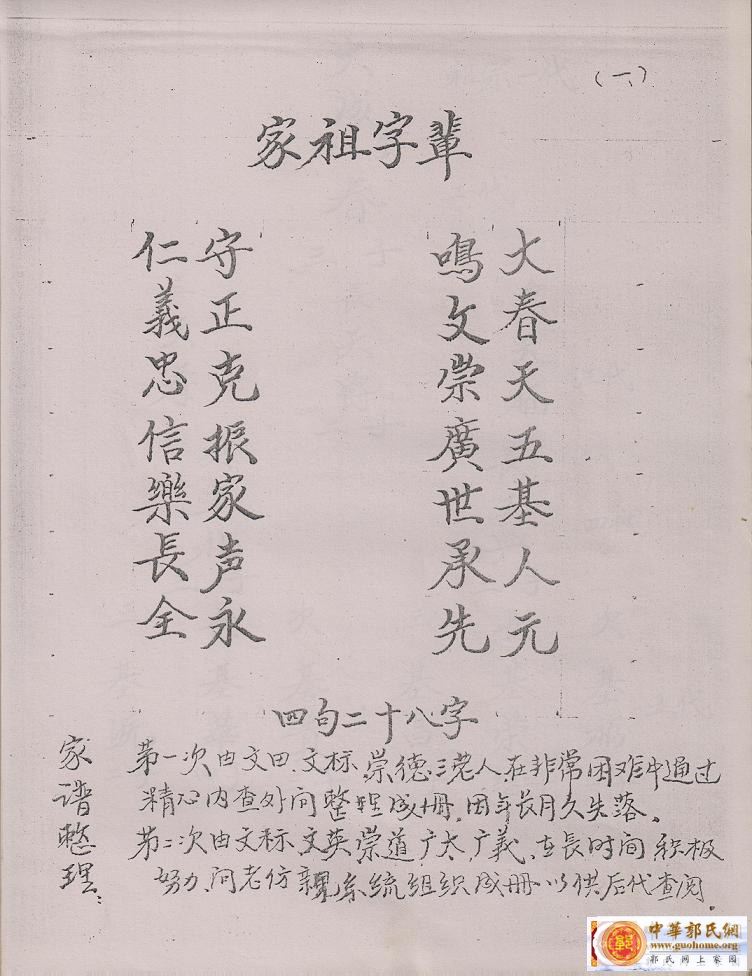 (一)
家祖字輩
大春天五基人元
鳴文崇廣世承先
守正克振家声永
仁義忠信樂長全
四句二十八字
家谱整理:
第一次由文田、文标、崇德、三老人在非常困难中通过
精心内查外问整理成册,因年长月久失落。
第二次由文标、文英、崇道、广太、广義、在長时间积极
努力、问老仿親系统组织成册、以供后代查阅.
中華郭氏網
www.guohome.com
郭氏網上家园